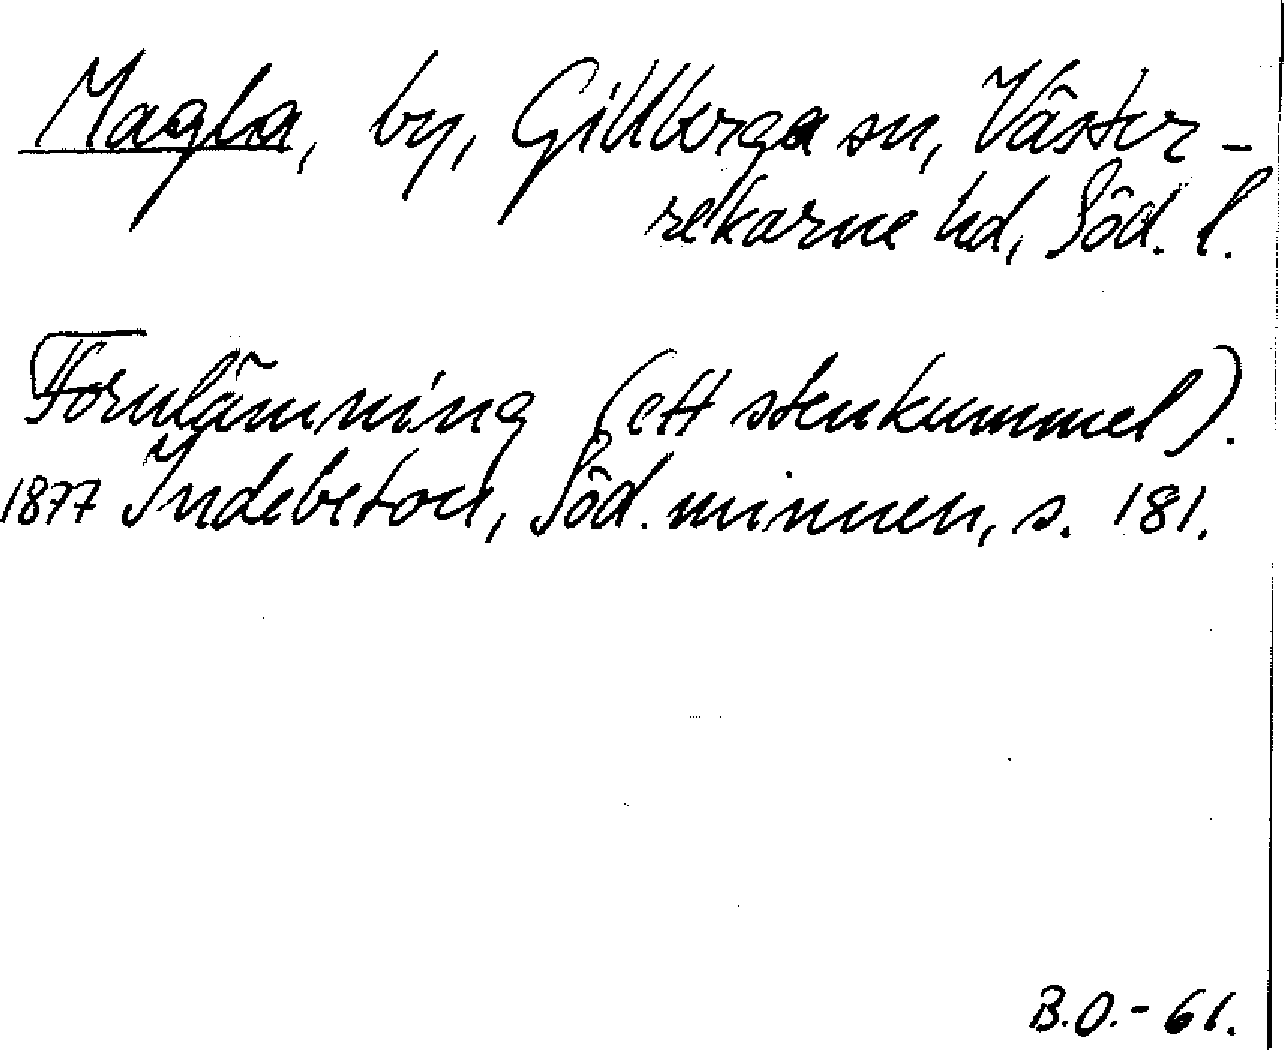 Magla, by, Gillberga sn, Väster-
rekarne hd, Söd. l.
Fornlämning (ett stenkummel).
1877 Indebetou, Söd. minnen, s. 181.
B.O.-61.